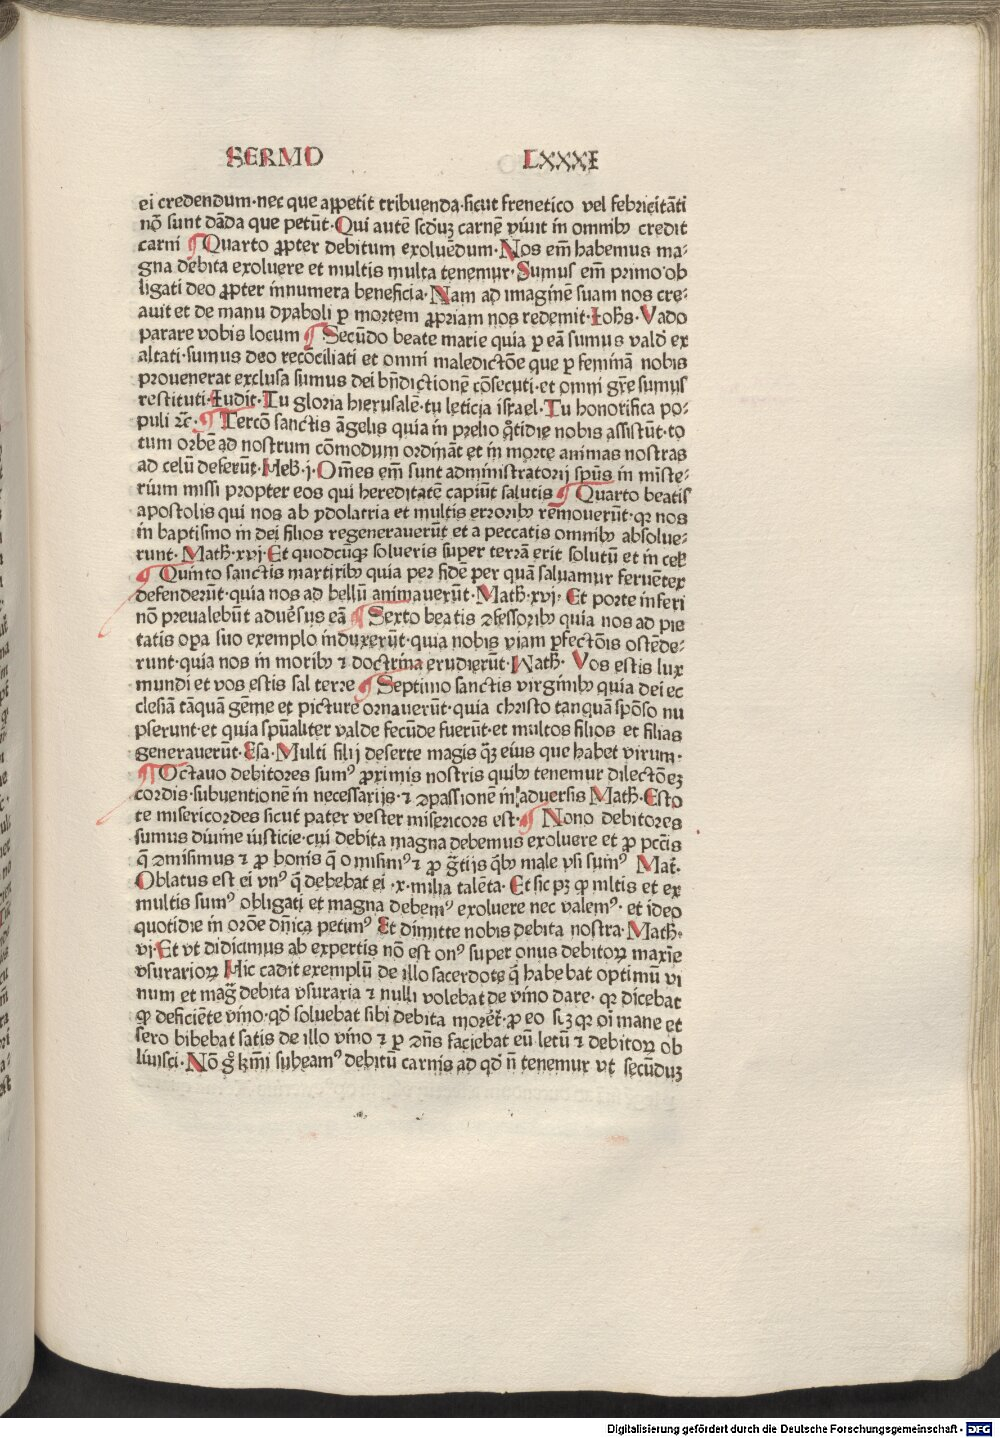 SERMO LXXXI
ei credendum·nec que appetit tribuenda·sicut frenetico vel febricitāti
nō sunt dāda que petūt·Qui autē scd̓uꝫ carnē viuūt in omnibꝰ credit
carni ¶ Quarto ꝓpter debitum exoluēdum·Nos em̄ habemus ma⸗
gna debita exoluere et multis multa tenemur·Sumus em̄ primo ob
ligati deo ꝓpter innumera beneficia·Nam ad imaginē suam nos cre⸗
auit et de manu dyaboli ꝑ mortem ꝓpriam nos redemit·Iohs̄·Vado
parare vobis locum ¶ Secūdo beate marie quia ꝑ eā sumus vald̓ ex
altati·sumus deo recōciliati et omni maledictōe que ꝑ feminā nobis
prouenerat exclusa sumus dei bn̄dictionē cōsecuti·et omni gr̄e sumus
restituti·Iudit·Tu gloria hierusalē·tu leticia israel·Tu honorifica po⸗
puli ꝛc̄·¶ Tercō sanctis āgelis quia in prelio q̄tidie nobis assistūt·to
tum orbē ad nostrum cōmodum ordināt et in morte animas nostras
ad celū deferūt·Heb̄·j·Om̄es em̄ sunt administratorij sp̄us in miste⸗
rium missi propter eos qui hereditatē capiūt salutis ¶ Quarto beatis
apostolis qui nos ab ydolatria et multis erroribꝰ remouerūt·qꝛ nos
in baptismo in dei filios regenerauerūt et a peccatis omnibꝰ absolue⸗
runt·Math̄·xvj·Et quodcūqꝫ solueris super terrā erit solutū et in cel̓
¶ Quinto sanctis martiribꝰ quia per fidē per quā saluamur feruēter
defenderūt·quia nos ad bellū animauerūt·Math̄·xvj·Et porte inferi
nō preualebūt aduersus eā ¶ Sexto beatis ꝯfessoribꝰ quia nos ad pie
tatis oꝑa suo exemplo induxerūt·quia nobis viam ꝑfectōis ostēde⸗
runt·quia nos in moribꝰ ⁊ doctrina erudierūt·Math̄·Vos estis lux
mundi et vos estis sal terre ¶ Septimo sanctis virginibꝰ quia dei ec
clesiā tāquā gēme et picture ornauerūt·quia christo tanquā spōso nu
pserunt·et quia spūaliter valde fecūde fuerūt·et multos filios et filias
generauerūt·Esa·Multi filij deserte magis q̄ꝫ eius que habet virum·
¶ Octauo debitores sumꝰ ꝓximis nostris quibꝰ tenemur dilectōeꝫ
cordis·subuentionē in necessarijs·⁊ ꝯpassionē in aduersis Math̄·Esto
te misericordes sicut pater vester misericors est·¶ Nono debitores
sumus diuine iusticie·cui debita magna debemus exoluere et ꝓ pctīs
q̄ ꝯmisimus ⁊ ꝓ bonis q̄ omisimꝰ ⁊ ꝓ gr̄tijs q̄bꝰ male vsi sumꝰ Mat̄·
Oblatus est ei vnꝰ q̄ debebat ei·x·milia talēta·Et sic pꝫ ꝙ mltis et ex
multis sumꝰ obligati et magna debemꝰ exoluere nec valemꝰ·et ideo
quotidie in orōe dn̄ica petimꝰ Et dimitte nobis debita nostra·Math̄·
vj·Et vt didicimus ab expertis nō est onꝰ super onus debitoꝝ maxīe
vsurarioꝝ Hic cadit exemplū de illo sacerdote q̓ habebat optimū vi
num et maḡ debita vsuraria ⁊ nulli volebat de vino dare·qꝛ dicebat
ꝙ deficiēte vino·qd̓ soluebat sibi debita moreret̄·ꝓ eo sꝫ qꝛ oī mane et
sero bibebat satis de illo vino ⁊ ꝑ ꝯn̄s faciebat eū letū ⁊ debitoꝝ ob
liuisci·Nō gͦ kmī subeamꝰ debitū carnis ad qd̓ n̄ tenemur vt secūduꝫ
Digitalisierung gefördert durch die Deutsche Forschungsgemeinschaft - DFG